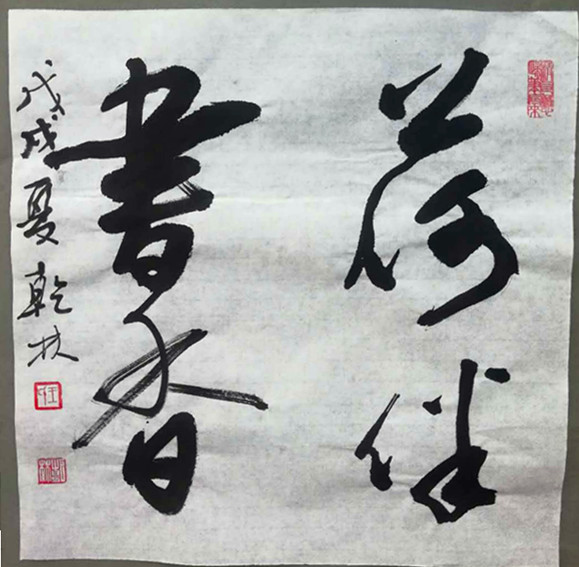 荷伴
書香
戊戌夏乾林